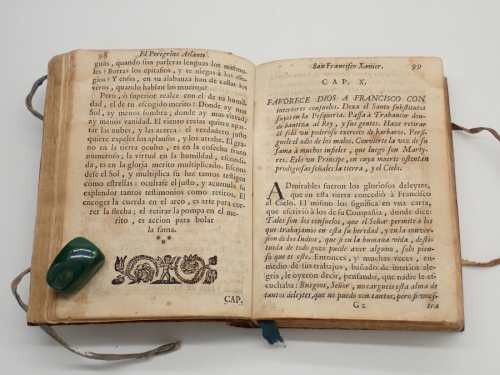 98 El Peregrino Atlante
guas, quando son parleras lenguas los marmo-
les? Borras los epitafios, y te niegas à los elo-
gios? Y enfin, en su alabanza han de callar los
vivos, quando hablan los muertos?
Pero, ò superior realce con el de tu humil-
dad, el de tu escogido merito! Donde ay mas
Sol, ay menos sombra, donde ay mas virtud
ay menos vanidad. El viento cerias quiere apar-
tar las nubes, y las acerca: el verdadero justo
quiere expeler los aplausos, y los atrahe. El gra-
no en la tierra oculto, es en la cosecha fruto
numeroso; la virtud en la humildad, escondi-
da, es en la gloria merito multiplicado. Escon-
dese el Sol, y multiplica su luz tantos testigos
como estrellas: ocultase el justo, y acumula su
explendor tantos testimonios como retiros. El
encoger la cuerda en el arco, es arte para cor-
rer la flecha; el retirar la pompa en el me-
rito, es accion para bolar
la fama.
***
CAP.
San Francisco Xavier. 99
CAP. X.
FAVORECE DIOS A FRANCISCO CON
interiores consuelos. Dexa el Santo substitutos
suyos en la Pesqueria. Passa à Trabancor don-
de bautiza al Rey, y sus gentes. Haze retirar
èl solo un poderoso exercito de barbaros. Persi-
guele el odio de los malos. Convierte la voz de su
fama à muchos infieles, que luego son Marty-
res. Eslo un Principe, en cuya muerte ostentan
prodigiosas señales la tierra, y el Cielo.
ADmirables fueron los gloriosos deleytes,
que en esta tierra concediò à Francisco
el Cielo. El mismo los significa en una carta,
que escriviò à los de su Compañia, donde dize:
Tales son los consuelos, que el Señor permite à los
que trabajamos en esta su heredad, y en la conver-
sion de los Indios, que si en la humana vida, desti-
tuida de todo gozo puede aver alguno, solo pien-
so que es este. Entonces, y muchas veces, en-
medio de sus trabajos, bañados de interior ale-
gria, le oyeron decir, pensando, que nadie le es-
cuchaba: Ruegoos, Señor, no cargueis esta alma de
tantos deleytes, que no puedo con tantos; pero si vues-
G 2 tra